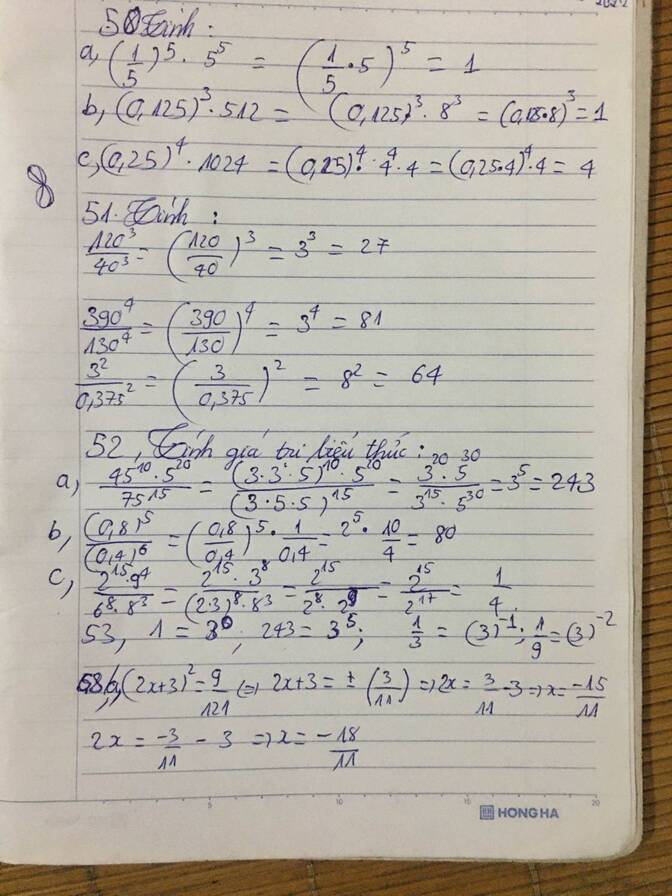 50 Tính :
a, (1/5)^5 · 5^5 = (1/5 · 5)^5 = 1
b, (0,125)^3 · 512 = (0,125)^3 · 8^3 = (0,125·8)^3 = 1
c, (0,25)^4 · 1024 = (0,25)^4 · 4^4 · 4 = (0,25·4)^4 · 4 = 4
8
51. Tính :
120^3/40^3 = (120/40)^3 = 3^3 = 27
390^4/130^4 = (390/130)^4 = 3^4 = 81
3^2/0,375^2 = (3/0,375)^2 = 8^2 = 64
52, Tính giá trị biểu thức :
a, 45^10 · 5^20/75^15 = (3·3·5)^10 · 5^20/(3·5·5)^15 = 3^20 · 5^30/3^15 · 5^30 = 3^5 = 243
b, (0,8)^5/(0,4)^6 = (0,8/0,4)^5 · 1/0,4 = 2^5 · 10/4 = 80
c, 2^15·9^4/6^8·8^3 = 2^15 · 3^8/(2·3)^8·8^3 = 2^15/2^8·2^9 = 2^15/2^17 = 1/4
53, 1 = 3^0, 243 = 3^5; 1/3 = (3)^-1; 1/9 = (3)^-2
58, b, (2x+3)^2 = 9/121 (=) 2x+3 = ± (3/11) => 2x = 3/11 - 3 => x = -15/11
2x = -3/11 - 3 => x = -18/11
5 10 15 20
HONG HA